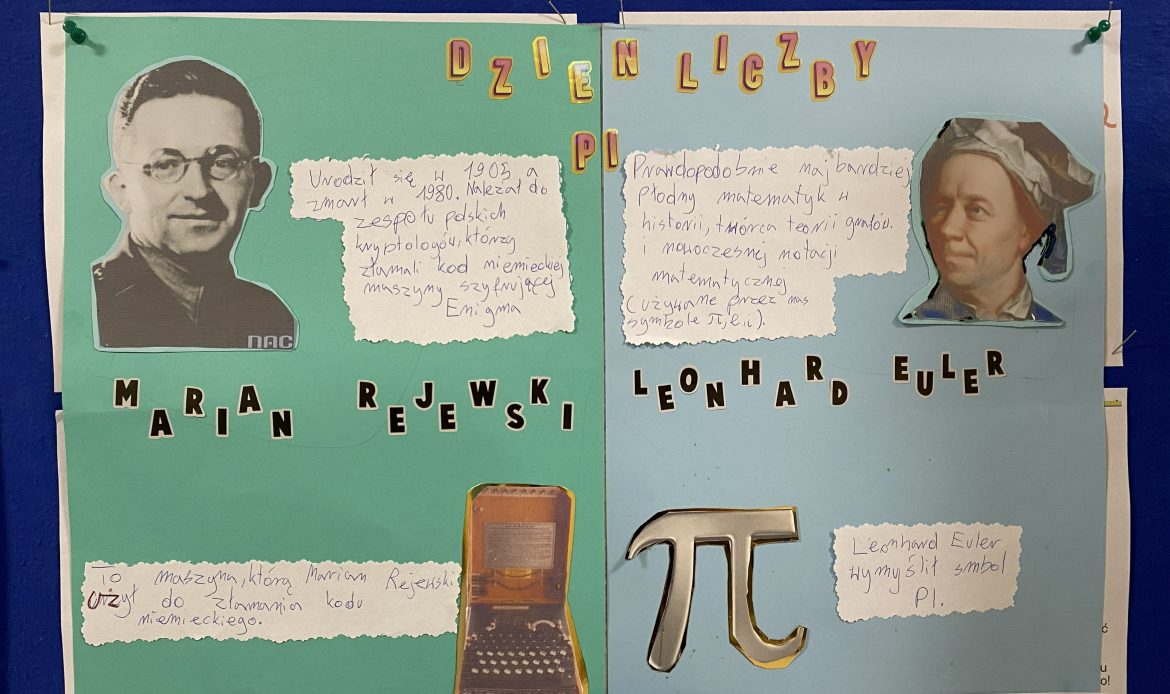 DZIEŃ LICZBY
PI
Urodził się w 1905 a
zmarł w 1980. Należał do
zespołu polskich
kryptologów, którzy
złamali kod niemieckiej
maszyny szyfrującej
Enigma
NAC
MARIAN REJEWSKI
To maszyna, którą Marian Rejewski
użył do złamania kodu
niemieckiego.
Prawdopodobnie najbardziej
płodny matematyk w
historii, twórca teorii grafów.
i nowoczesnej notacji
matematycznej
(używane przez nas
symbole π, e, i).
LEONHARD EULER
Leonhard Euler
wymyślił smbol
PI.